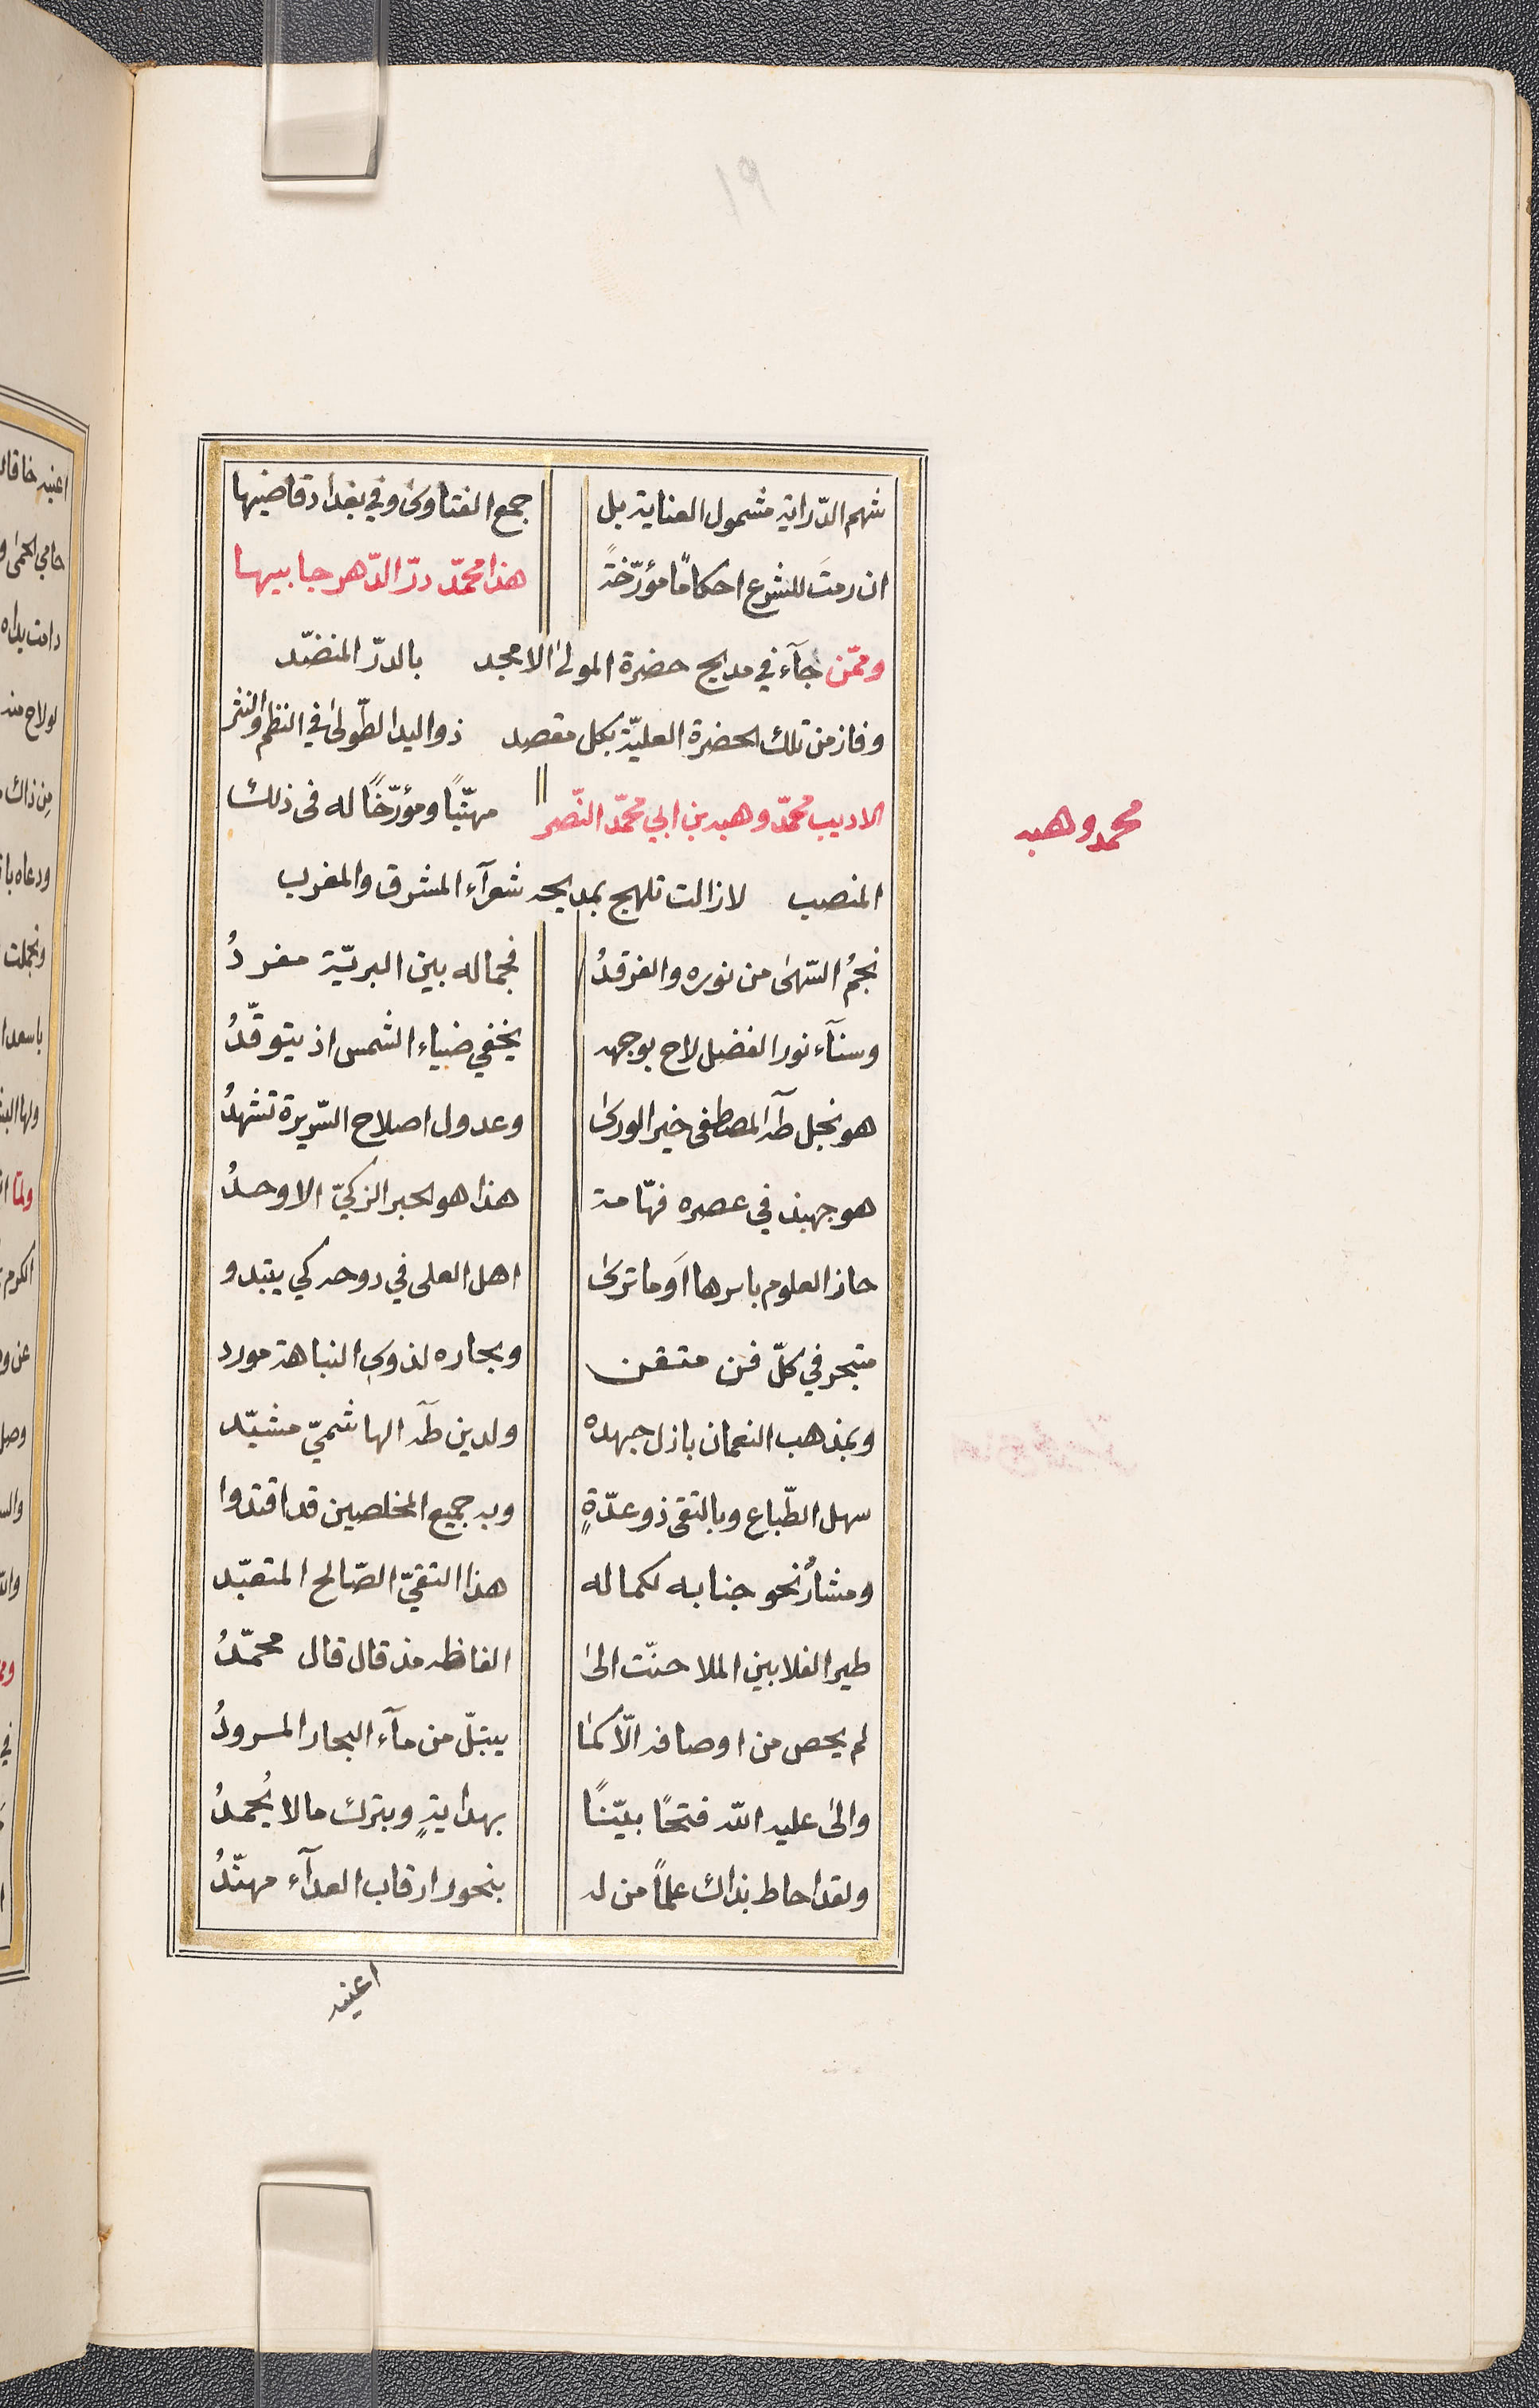 شهم الدّراية مشمول العناية بل جمع الفتاوى وفي بغداد قاضيها
ان رمتَ للشرع احكامًا مؤرّخةً هذا محمّد درّ الدّهر جابيها
وممّن جآء في مديح حضرة المولى الامجد بالدرّ المنضّد
وفاز من تلك الحضرة العليّة بكل مقصد ذو اليد الطّولى في النظم والنثر
الاديب محمّد وهبه بن ابي محمّد النّصر مهنّيًا ومؤرّخًا له فى ذلك
محمد وهبه
المنصب لازالت تلهج بمديحه شعرآء المشرق والمغرب
نجمُ السّهى من نوره والفرقدُ فجماله بين البريّة مفردُ
وسنآء نور الفضل لاح بوجهه يخفي ضياء الشمس اذ يتوقّدُ
هو نجل طٓه المصطفى خير الورى وعدول اصلاح السّريرة تشهدُ
هو جهبذ في عصره فهّامة هذا هو الحبر الزكيّ الاوحدُ
حاز العلوم باسرها اَوما ترى اهل العلى في دوحه كي يبتدو
متبحر في كلّ فن متقن وبحاره لذوي النباهة مورد
وبمذهب النعمان باذل جهده ولدين طٓه الهاشميّ مشيّد
سهل الطّباع وبالتقى ذو عدّةٍ وبه جميع المخلصين قد اقتدوا
ومشارٌ نحو جنابه لكماله هذا التقيّ الصّالح المتعبّد
طير الفلا بين الملا حنّت الى الفاظه مذ قال قال محمّدُ
لم يحص من اوصافه الّا كما يبتلّ من مآء البحار المرودُ
والى عليه اللّه فتحًا بيّنًا بهدايةٍ وبترك ما لا يُحمدُ
ولقد احاط بذاك علمًا من له بنحور ارقاب العدآء مهنّدُ
اعنيه